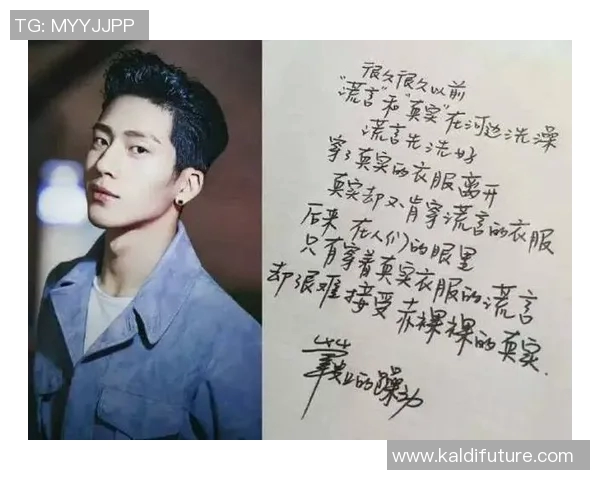 TG: MYYJJPP
很久很久以前
“谎言”和“真实”在河边洗澡
谎言先洗好
穿了真实的衣服离开
真实却不肯穿谎言的衣服
后来 在人们的眼里
只有穿着真实衣服的谎言
却很难接受赤裸裸的真实.
的躁动
www.kaldifuture.com